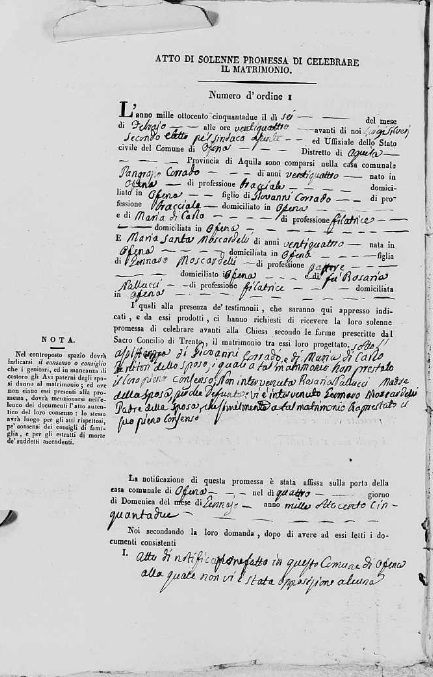 ATTO DI SOLENNE PROMESSA DI CELEBRARE
IL MATRIMONIO.
Numero d'ordine 1
L'anno mille ottocento cinquantadue il dì sei del mese
di Febrajo alle ore ventiquattro avanti di noi
secondo eletto pel sindaco ed Uffiziale dello Stato
civile del Comune di Ofena Distretto di
Provincia di Aquila sono comparsi nella casa comunale
Pangrazio Corrado di anni ventiquattro nato in
Ofena di professione bracciale domici-
liato in Ofena figlio di Giovanni Corrado di pro-
fessione bracciale domiciliato in Ofena
e di Maria di Carlo di professione filatrice
domiciliata in Ofena
E Maria Santa Moscardelli di anni ventiquattro nata in
Ofena domiciliata in Ofena figlia
di Gennaro Moscardelli di professione pastore
domiciliato Ofena e di fu Rosaria
di professione filatrice domiciliata
in Ofena
I quali alla presenza de' testimonj, che saranno quì appresso indi-
cati, e da essi prodotti, ci hanno richiesti di ricevere la loro solenne
promessa di celebrare avanti alla Chiesa secondo le forme prescritte dal
Sacro Concilio di Trento, il matrimonio tra essi loro progettato, sotto l'
assistenza di Giovanni Corrado, e di Maria di Carlo
Genitori dello sposo, i quali a tal matrimonio han prestato
il loro pieno consenso, Non intervenuta Rosaria Madre
della sposa perché defunta, vi è intervenuto Gennaro Moscardelli
Padre della sposa, che a tal matrimonio ha prestato il
suo pieno consenso
NOTA.
Nel controposto spazio dovrà
indicarsi il consenso o consiglio
che i genitori, ed in mancanza di
costoro gli Avi paterni degli sposi
danno al matrimonio; ed ove
non siano essi presenti alla pro-
messa, dovrà menzionarsi nell'e-
lenco dei documenti l'atto auten-
tico del loro consenso: lo stesso
avrà luogo per gli atti rispettosi,
pe' consensi dei consigli di fami-
glia, e per gli estratti di morte
de' suddetti ascendenti.
La notificazione di questa promessa è stata affissa sulla porta della
casa comunale di Ofena nel dì quattro giorno
di Domenica del mese di Gennajo anno mille ottocento cin-
quantadue
Noi secondando la loro domanda, dopo di avere ad essi letti i do-
cumenti consistenti
1. Atto di notificazione fatto in questo Comune di Ofena
alla quale non vi è stata opposizione alcuna